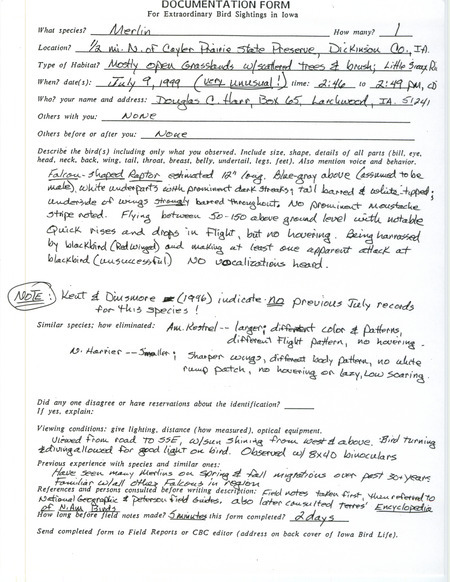 DOCUMENTATION FORM
For Extraordinary Bird Sightings in Iowa
What species? Merlin How many? 1
Location? 1/2 mi. N. of Cayler Prairie State Preserve, Dickinson Co., IA.
Type of Habitat? Mostly open Grasslands w/scattered trees & brush; Little Sioux R.
When? date(s): July 9, 1999 (very unusual!) time: 2:46 to 2:49 pm,
Who? your name and address: Douglas C. Harr, Box 65, Larchwood, IA. 51241
Others with you: NONE
Others before or after you: None
Describe the bird(s) including only what you observed. Include size, shape, details of all parts (bill, eye,
head, neck, back, wing, tail, throat, breast, belly, undertail, legs, feet). Also mention voice and behavior.
Falcon-shaped Raptor estimated 12" long. Blue-gray above (assumed to be
male), white underparts with prominent dark streaks; tail barred & white-tipped;
underside of wings strongly barred throughout. No prominent moustache
stripe noted. Flying between 50-150 above ground level with notable
Quick rises and drops in flight, but no hovering. Being harrassed
by blackbird (Red Winged) and making at least one apparent attack at
blackbird (unsuccessful) NO vocalizations heard.
NOTE: Kent & Dinsmore (1996) indicate no previous July records
for this species!
Similar species: how eliminated: Am. Kestrel -- larger; different color & patterns,
different flight pattern, no hovering.
N. Harrier -- Smaller; sharper wings, different body pattern, no white
rump patch, no hovering or lazy, low soaring.
Did any one disagree or have reservations about the identification?
If yes, explain:
Viewing conditions: give lighting, distance (how measured), optical equipment.
Viewed from road to SSE, w/sun shining from west & above. Bird turning
& diving allowed for good light on bird. Observed w/ 8x40 binoculars
Previous experience with species and similar ones:
Have seen many Merlins on Spring & fall migrations over past 30+ years
Familiar w/all other Falcons in region
References and persons consulted before writing description: Field notes taken first, then referred to
National Geographic & Peterson field Guides. also later consulted Terres' Encyclopedia
of N. Am Birds
How long before field notes made? 5 minutes this form completed? 2 days
Send completed form to Field Reports or CBC editor (address on back cover of Iowa Bird Life).